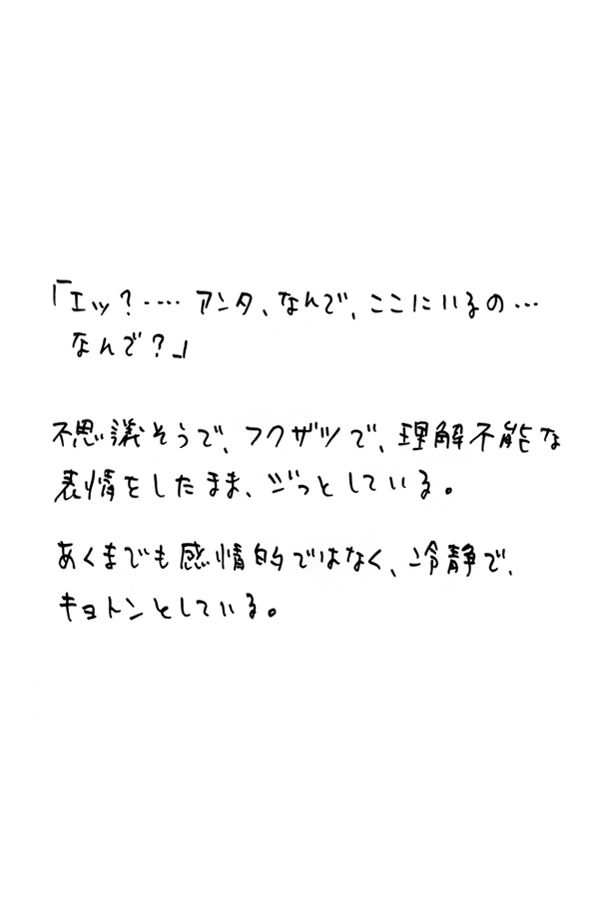 「エッ？‥‥ アンタ、なんで、ここにいるの…
なんで？」
不思議そうで、フクザツで、理解不能な
表情をしたまま、ジっとしている。
あくまでも感情的ではなく、冷静で、
キョトンとしている。